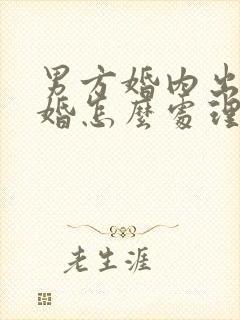 男方婚内出
婚怎麽處理
老生涯